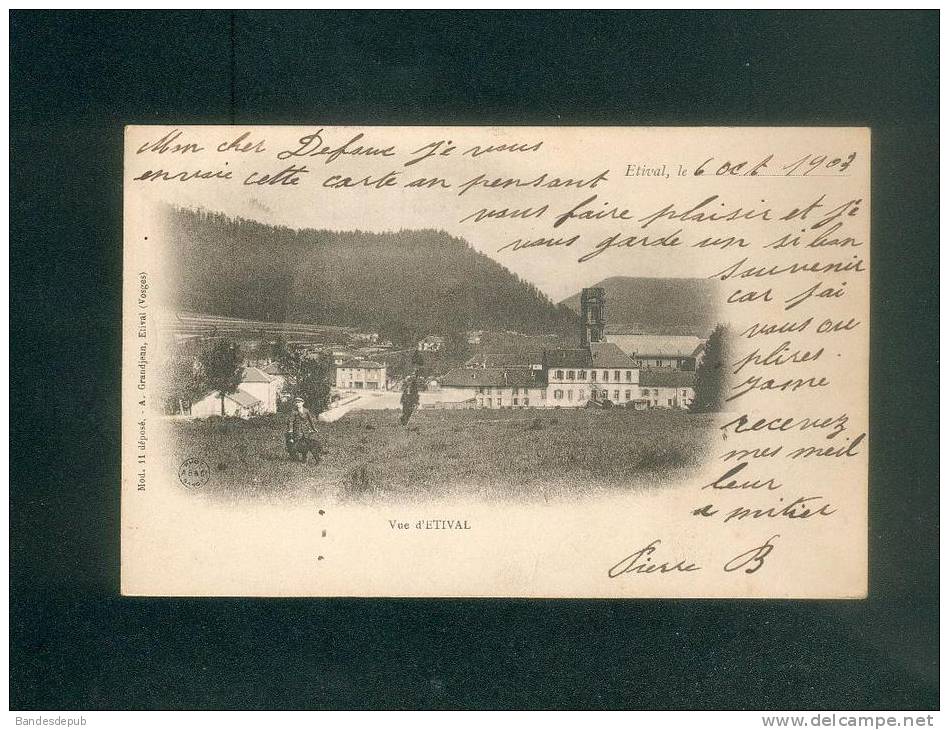 Mon cher Defaux je vous
envoie cette carte an pensant
Etival, le 6 oct 1903
vous faire plaisir et je
vous garde un si bon
souvenir
car jai
vous ore
plires.
Jame
recevez
mes meil
leur
a mitier
Pierre B
Vue d'ETIVAL
Mod. 11 déposé. - A. Grandjean, Etival (Vosges)
Bandesdepub
www.delcampe.net